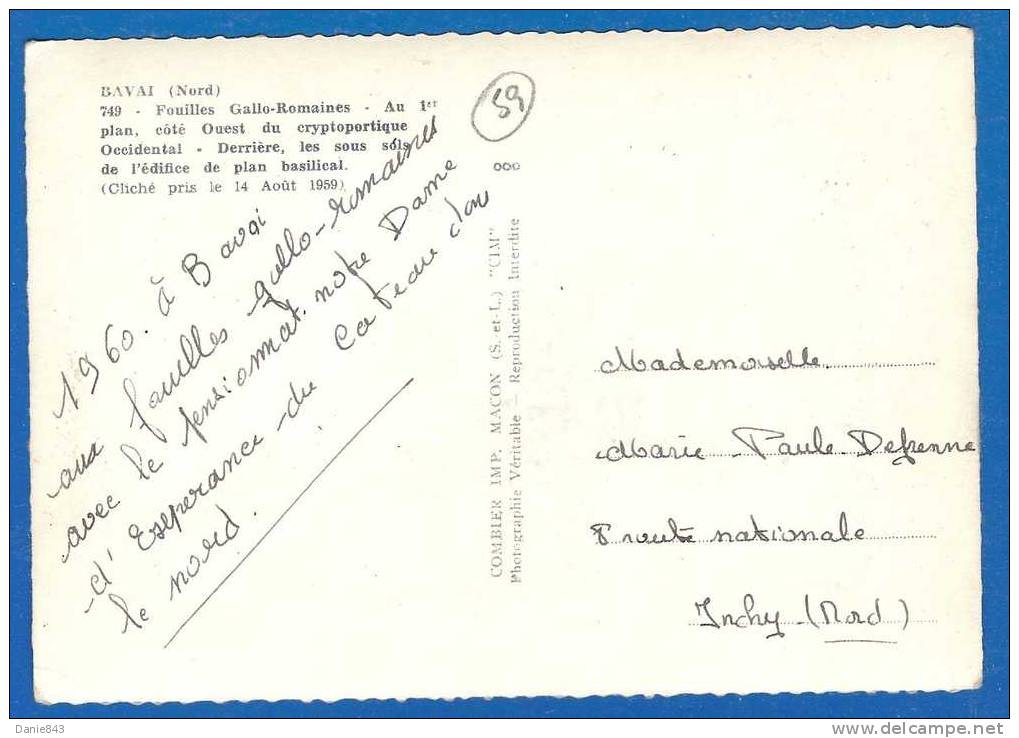 BAVAI (Nord)
749 - Fouilles Gallo-Romaines - Au 1er
plan, côté Ouest du cryptoportique
Occidental - Derrière, les sous sols
de l'édifice de plan basilical.
(Cliché pris le 14 Août 1959)
59
1960. à Bavai
aux fouilles gallo-romaines
avec le pensionnat notre Dame
d'Eseperance du Cateau dans
le nord.
COMBIER IMP. MACON (S.-et-L.) "CIM"
Photographie Véritable - Reproduction Interdite
Mademoiselle
Marie Paule Defrenne
route nationale
Inchy (Nord)
Danie843
delcampe.net